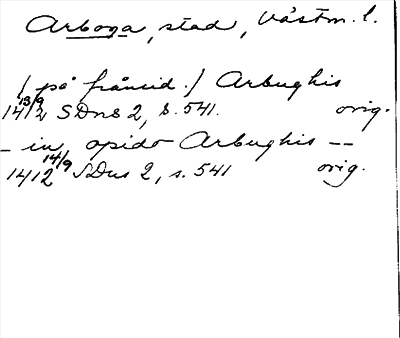 Arboga, stad, Västm. l.
/ på fråncid. / Arbughis
1412 13/9 SDns 2, s. 541. orig.
– in opido Arbughis --
1412 14/9 SDns 2, s. 541 orig.